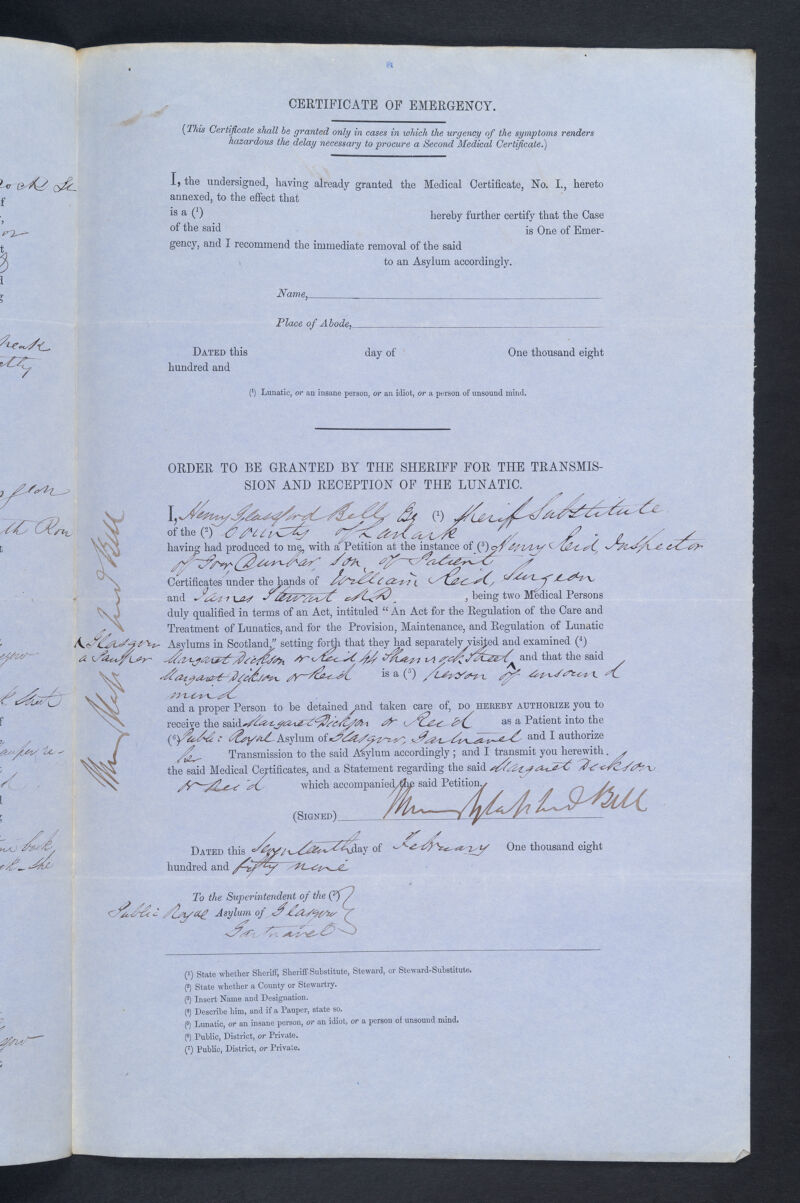 CERTIFICATE OF EMERGENCY.
(This Certificate shall be granted only in cases in which the urgency of the symptoms renders
hazardous the delay necessary to procure a Second Medical Certificate.)
I, the undersigned, having already granted the Medical Certificate, No. I., hereto
annexed, to the effect that
is a (¹) hereby further certify that the Case
of the said is One of Emer-
gency, and I recommend the immediate removal of the said
to an Asylum accordingly.
Name,
Place of Abode,
DATED this day of One thousand eight
hundred and
(¹) Lunatic, or an insane person, or an idiot, or a person of unsound mind.
ORDER TO BE GRANTED BY THE SHERIFF FOR THE TRANSMIS-
SION AND RECEPTION OF THE LUNATIC.
I, Henry Glassford Bell Esq (¹) Sheriff Substitute
of the (²) County of Lanark
having had produced to me, with a Petition at the instance of (³) Henry Reid, Inspector
of Poor, Dunbar, Son of Patient
Certificates under the hands of William Reid, Surgeon
and James Stewart M.D. , being two Medical Persons
duly qualified in terms of an Act, intituled “An Act for the Regulation of the Care and
Treatment of Lunatics, and for the Provision, Maintenance, and Regulation of Lunatic
Asylums in Scotland,” setting forth that they had separately visited and examined (⁴)
Margaret Dickson or Reid Shamrock Street, and that the said
Glasgow
a Pauper
Margaret Dickson or Reid is a (⁵) person of unsound
mind
and a proper Person to be detained and taken care of, DO HEREBY AUTHORIZE you to
receive the said Margaret Dickson or Reid as a Patient into the
(⁶) Public Royal Asylum of Glasgow, Gartnavel and I authorize
her Transmission to the said Asylum accordingly; and I transmit you herewith
the said Medical Certificates, and a Statement regarding the said Margaret Dickson
or Reid which accompanied the said Petition.
(SIGNED) Henry Glassford Bell
DATED this Seventeenth day of February One thousand eight
hundred and fifty nine
To the Superintendent of the (⁷)
Public Royal Asylum of Glasgow
Gartnavel
(¹) State whether Sheriff, Sheriff Substitute, Steward, or Steward-Substitute.
(²) State whether a County or Stewartry.
(³) Insert Name and Designation.
(⁴) Describe him, and if a Pauper, state so.
(⁵) Lunatic, or an insane person, or an idiot, or a person of unsound mind.
(⁶) Public, District, or Private.
(⁷) Public, District, or Private.
Henry Glassford Bell